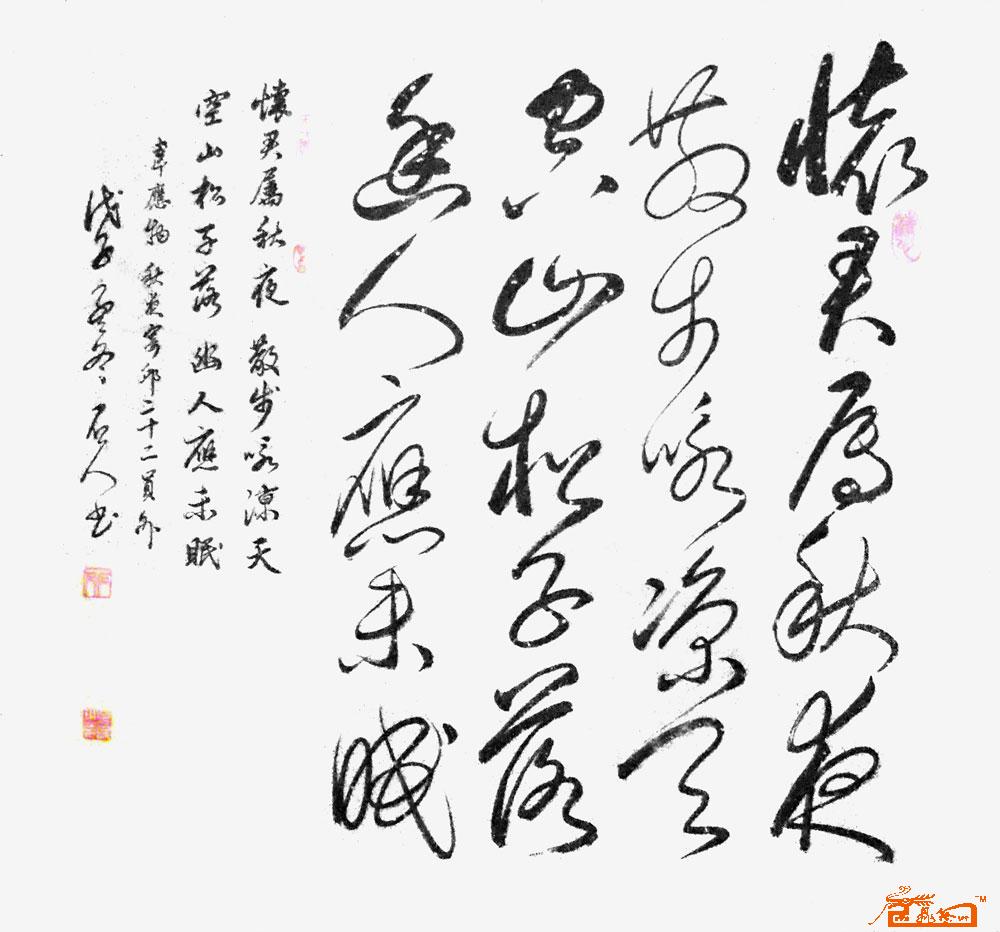 懷君屬秋夜
散步咏凉天
空山松子落
幽人應未眠
懷君屬秋夜 散步咏凉天
空山松子落 幽人應未眠
韋應物 秋夜寄邱二十二員外
戊子 冬 石人书